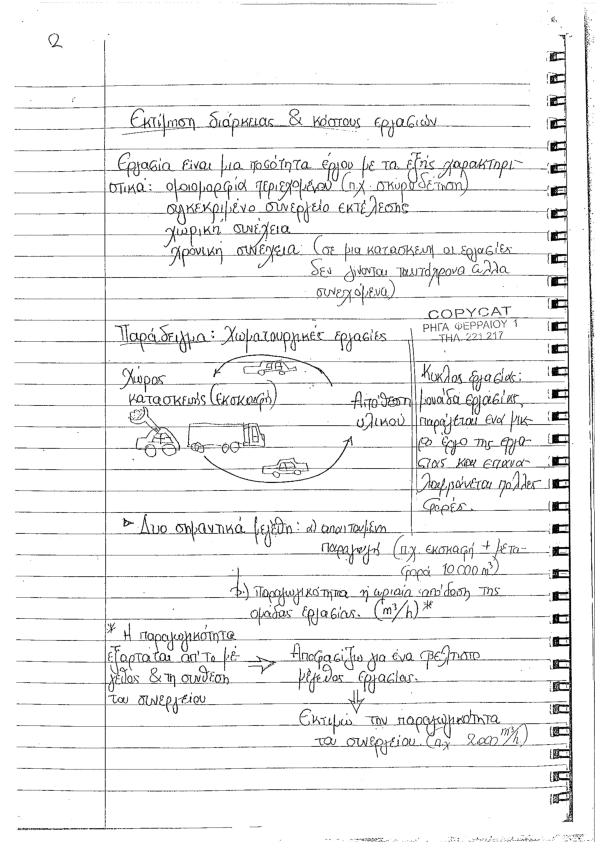 2
Εκτίμηση διάρκειας & κόστους εργασιών
Εργασία είναι μια ποσότητα έργου με τα εξής χαρακτηρι-
στικά: ομοιομορφία περιεχομένου (π.χ. σκυροδέτηση)
συγκεκριμένο συνεργείο εκτέλεσης
χωρική συνέχεια
χρονική συνέχεια (σε μια κατασκευή οι εργασίες
δεν γίνονται ταυτόχρονα αλλα
συνεχόμενα)
COPYCAT
ΡΗΓΑ ΦΕΡΡΑΙΟΥ 1
ΤΗΛ. 221 217
Παράδειγμα: Χωματουργικές εργασίες
Χώρος
κατασκευής (εκσκαφή)
Απόθεση
υλικού
Κύκλος εργασίας:
μονάδα εργασίας,
παράγεται ένα μικ-
ρο έργο της εργα-
σίας και επανα-
λαμβάνεται πολλες
φορές.
Δυο σημαντικά μεγέθη: α) απαιτουμένη
παραγωγή (π.χ. εκσκαφή + μετα-
φορά 10000 m³)
b.) Παραγωγικότητα ή ωριαία απόδοση της
ομαδας εργασίας. (m³/h)*
* Η παραγωγικότητα
εξαρτάται απ'το μέ-
γεθος & τη σύνθεση
του συνεργείου
⇒ Αποφασίζω για ένα βέλτιστο
μέγεθος εργασίας.
⇓
Εκτιμώ την παραγωγικότητα
του συνεργείου. (π.χ 2000 m³/h)